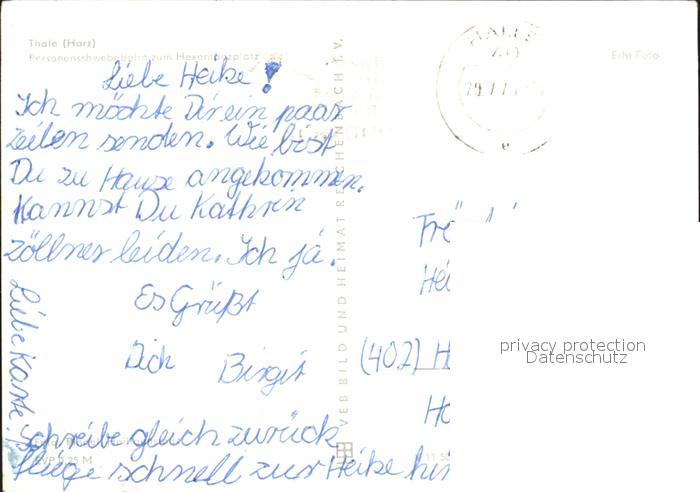 Thale (Harz)
Personenschwebebahn zum Hexentanzplatz
Echt Foto
HALLE
29.7.7
Liebe Heike!
Ich möchte Dir ein paar
zeilen senden. Wie bist
Du zu Hause angekommen.
Kannst Du Kathren
zöllner leiden. Ich ja.
Es Grüßt
Dich Birgit
Liebe Karte.
schreibe gleich zurück
fliege schnell zur Heike hin
VEB BILD UND HEIMAT REICHENBACH I.V.
Frä
Hei
(402) H
Ha
privacy protection
Datenschutz
0,25 M